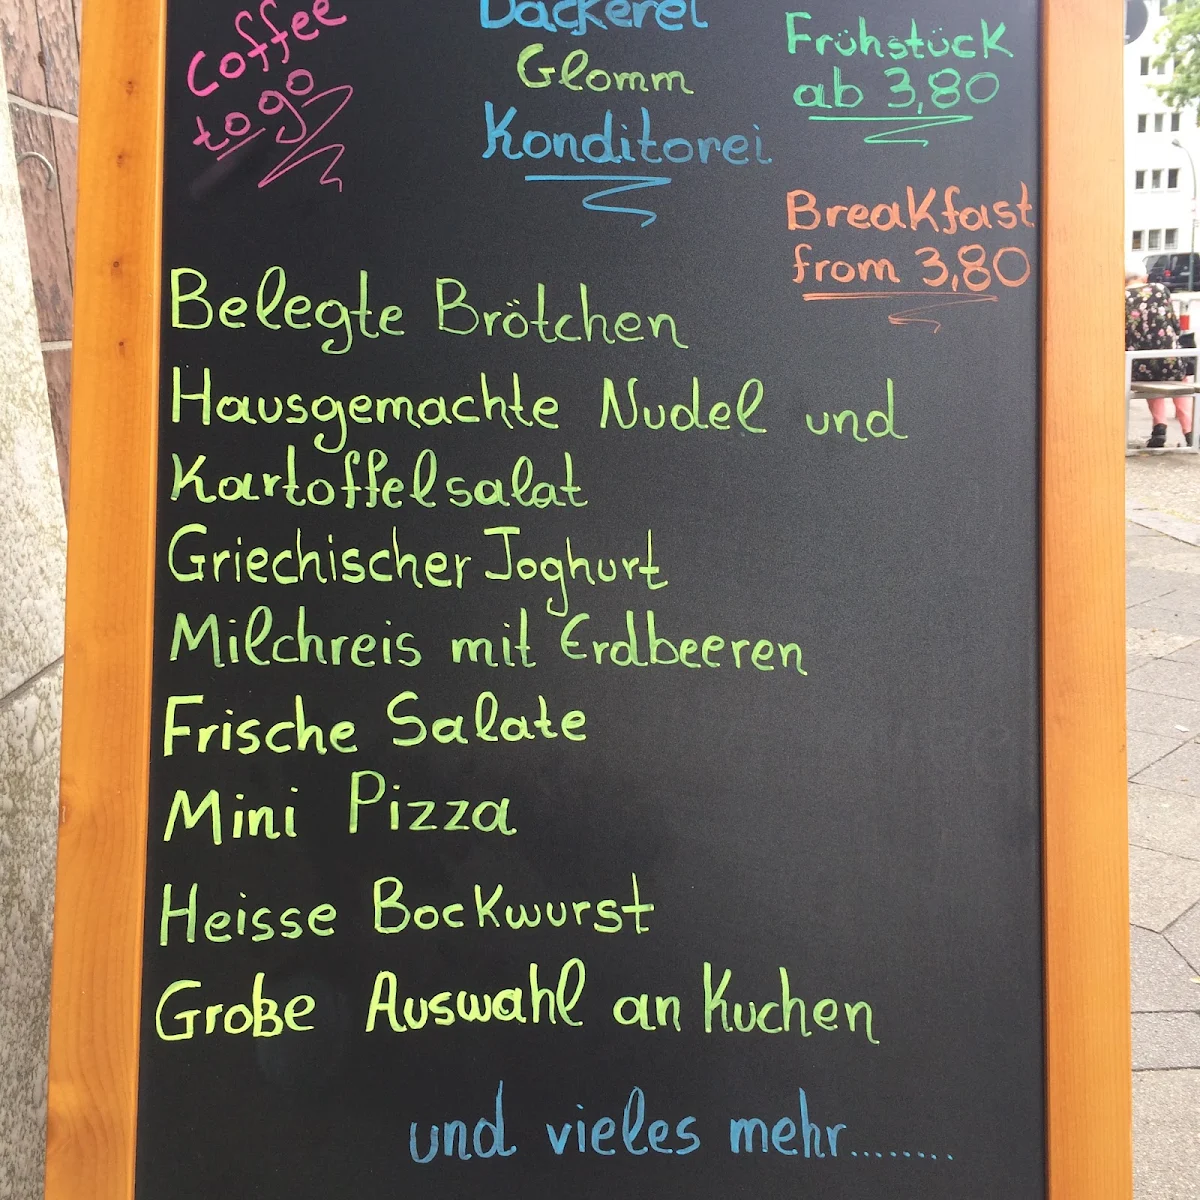 Coffee
to go
Bäckerei
Glomm
Konditorei
Frühstück
ab 3,80
Breakfast
from 3,80
Belegte Brötchen
Hausgemachte Nudel und
Kartoffelsalat
Griechischer Joghurt
Milchreis mit Erdbeeren
Frische Salate
Mini Pizza
Heisse Bockwurst
Große Auswahl an Kuchen
und vieles mehr........